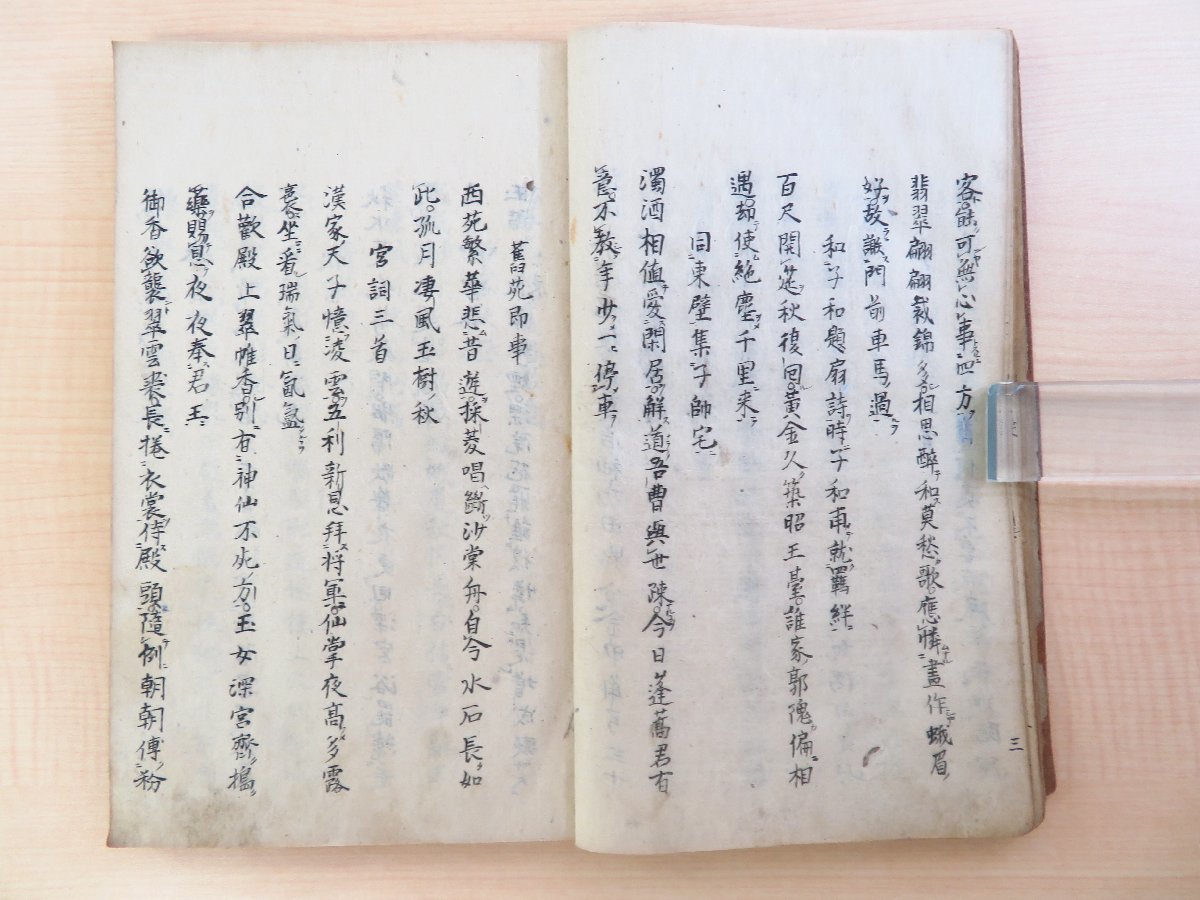 客能可無心事四方
翡翠翩翩裁錦多相思醉和莫愁歌應憐畫作蛾眉
好故譏門前車馬過
和子和題扇詩時子和甫就羈絆
百尺開筵秋復回黃金久築昭王臺誰家郭隗偏相
遇却使絶塵千里来
同東壁集子師宅
濁酒相値愛閑居解道吾曹與世疎今日蓬蒿君有
意不教年少一停車
三
舊苑即事
西苑繁華悲昔遊採菱唱斷沙棠舟自今水石長如
此孤月凄風玉樹秋
宮詞三首
漢家天子憶凌雲五利新恩拜將軍仙掌夜高多露
裛坐看瑞氣日氤氳
合歡殿上翠帷香別有神仙不死方玉女深宮齊搗
藥賜息夜夜奉君王
御香欲襲翠雲裘長捲衣裳侍殿頭隨例朝朝傅粉